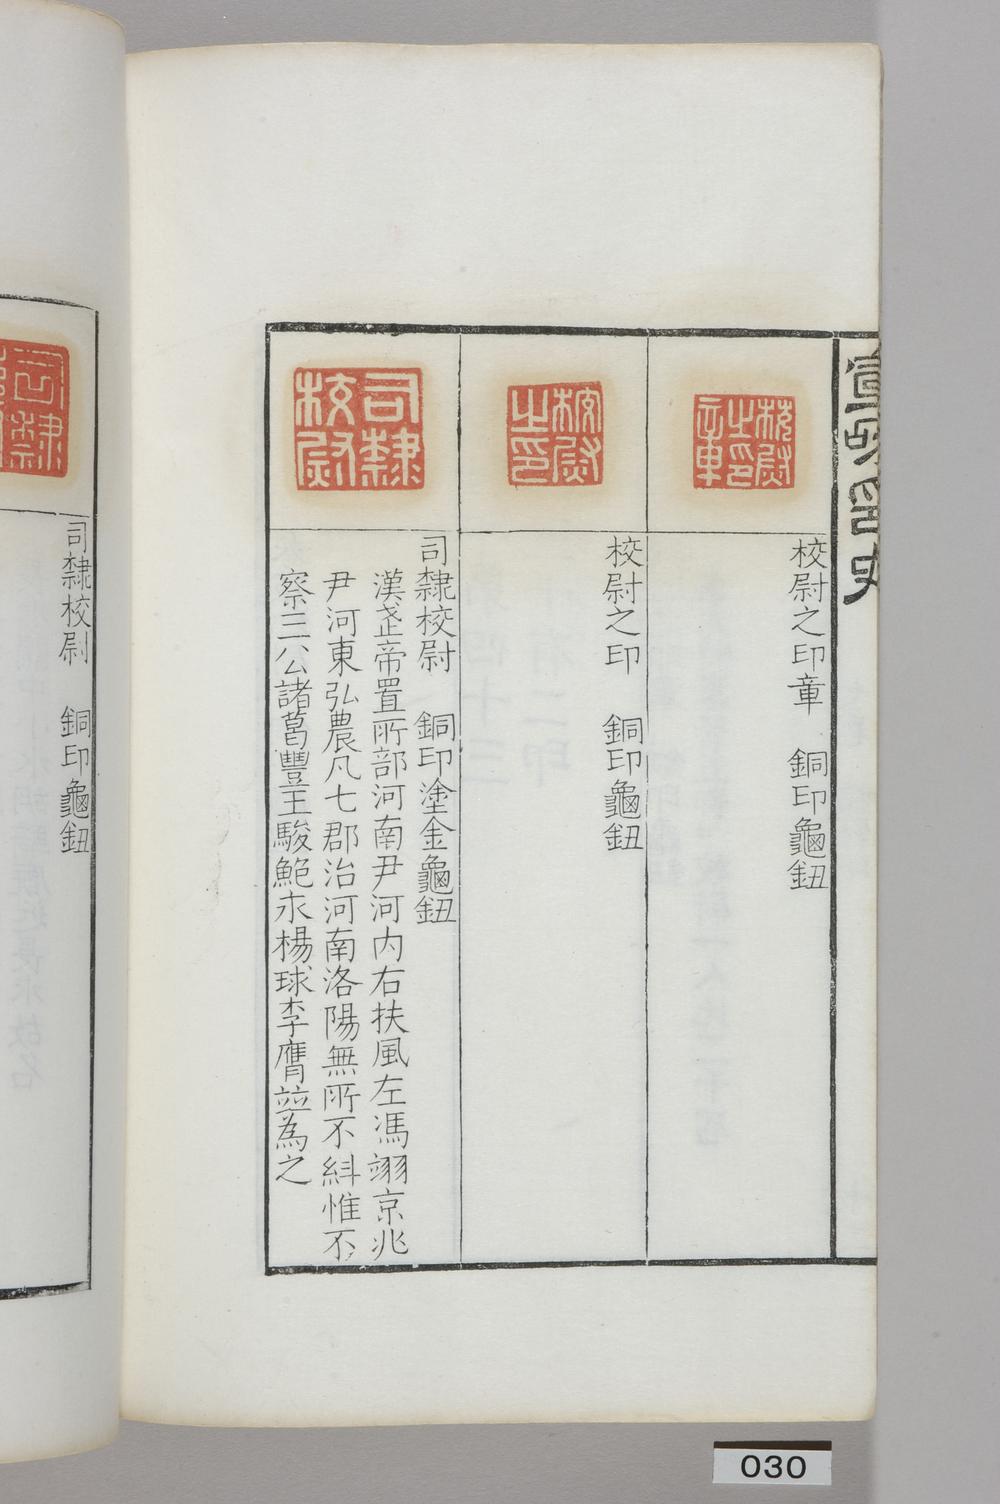 宣和印史
校尉之印章
校尉之印章　銅印龜鈕
校尉之印
校尉之印　銅印龜鈕
司隸校尉
司隸校尉　銅印塗金龜鈕
漢武帝置所部河南尹河内右扶風左馮翊京兆
尹河東弘農凡七郡治河南洛陽無所不糾惟不
察三公諸葛豐王駿鮑永楊球李膺並為之
司隸
司隸校尉　銅印龜鈕
030